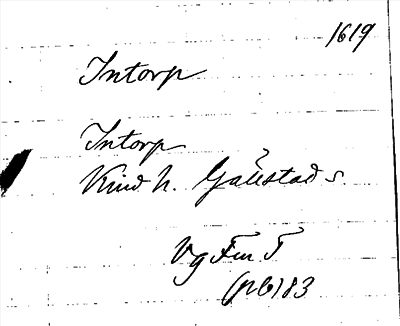 1619
Intorp
Intorp
Kind h. Gällstad s.
Vg
(pb) 83